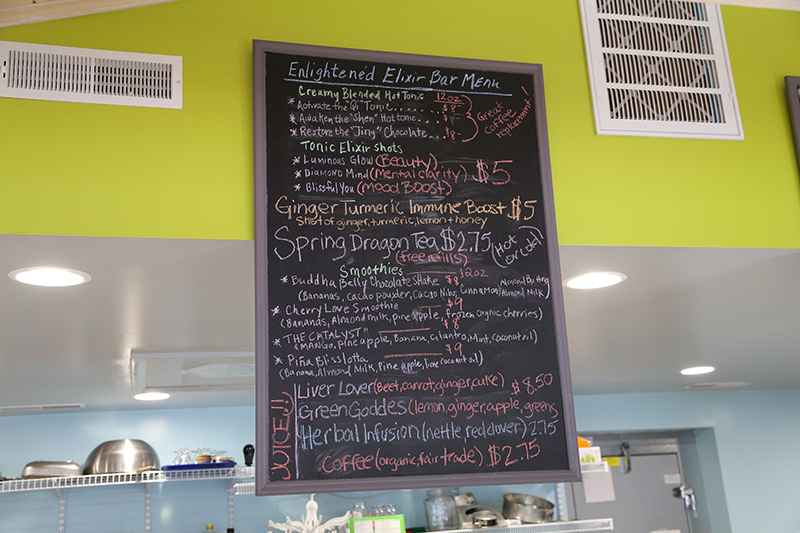 Enlightened Elixir Bar Menu
Creamy Blended Hot Tonic 12oz
* Activate the "Qi" Tonic..... $8-
* Awaken the "Shen" Hot tonic... $8-
* Restore the "Jing" Chocolate... $8-
Great coffee replacement!
Tonic Elixir Shots
* Luminous Glow (Beauty)
* Diamond Mind (Mental clarity) $5
* Blissful You (Mood Boost)
Ginger Turmeric Immune Boost $5
Shot of ginger, turmeric, lemon + honey
Spring Dragon Tea $2.75 (Hot or iced)
(free refills)
Smoothies 12oz
* Buddha Belly Chocolate Shake $8
(Bananas, cacao powder, Cacao Nibs, Cinnamon, Almond Butter, Almond Milk)
* Cherry Love Smoothie $9
(Bananas, Almond milk, pineapple, frozen organic cherries)
* "THE CATALYST" $8
(MANGO, pineapple, Banana, cilantro, Mint, coconut oil)
* Piña Blisslotta $9
(Banana, Almond Milk, Pineapple, lime coconut oil)
JUICE!!
Liver Lover (Beet, carrot, ginger, cuke) $8.50
Green Goddes (lemon, ginger, apple, greens
Herbal Infusion (nettle, red clover) 2.75
Coffee (organic, fair trade) $2.75